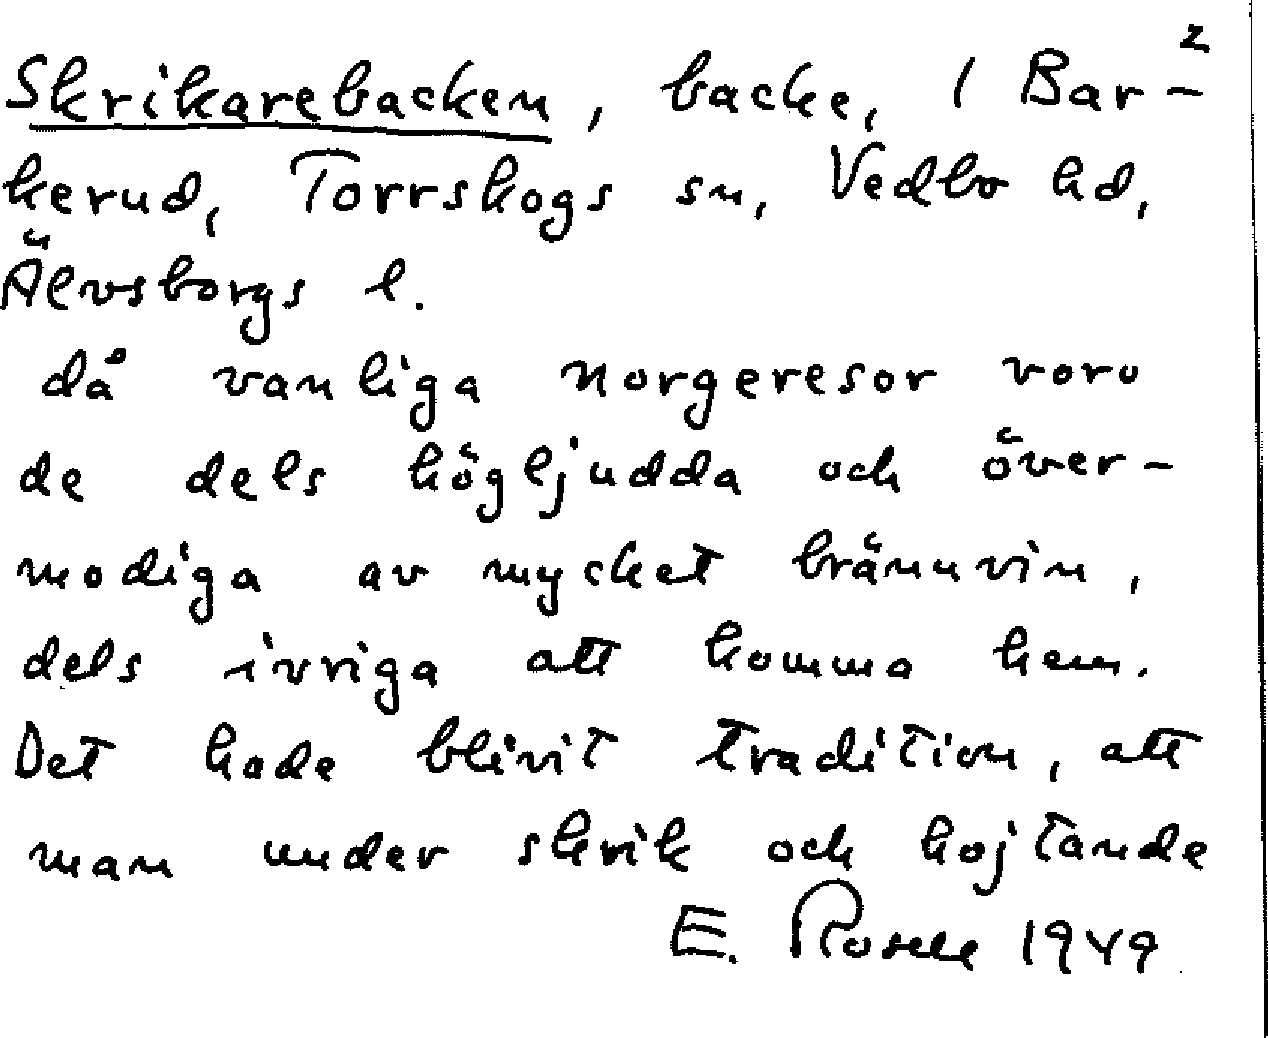 2
Skrikarebacken, backe, 1 Bar-
kerud, Torrskogs sn, Vedbo hd,
Älvsborgs l.
då vanliga norgeresor voro
de dels högljudda och över-
modiga av mycket brännvin,
dels ivriga att komma hem.
Det hade blivit tradition, att
man under skrik och hojtande
E. Rosell 1949